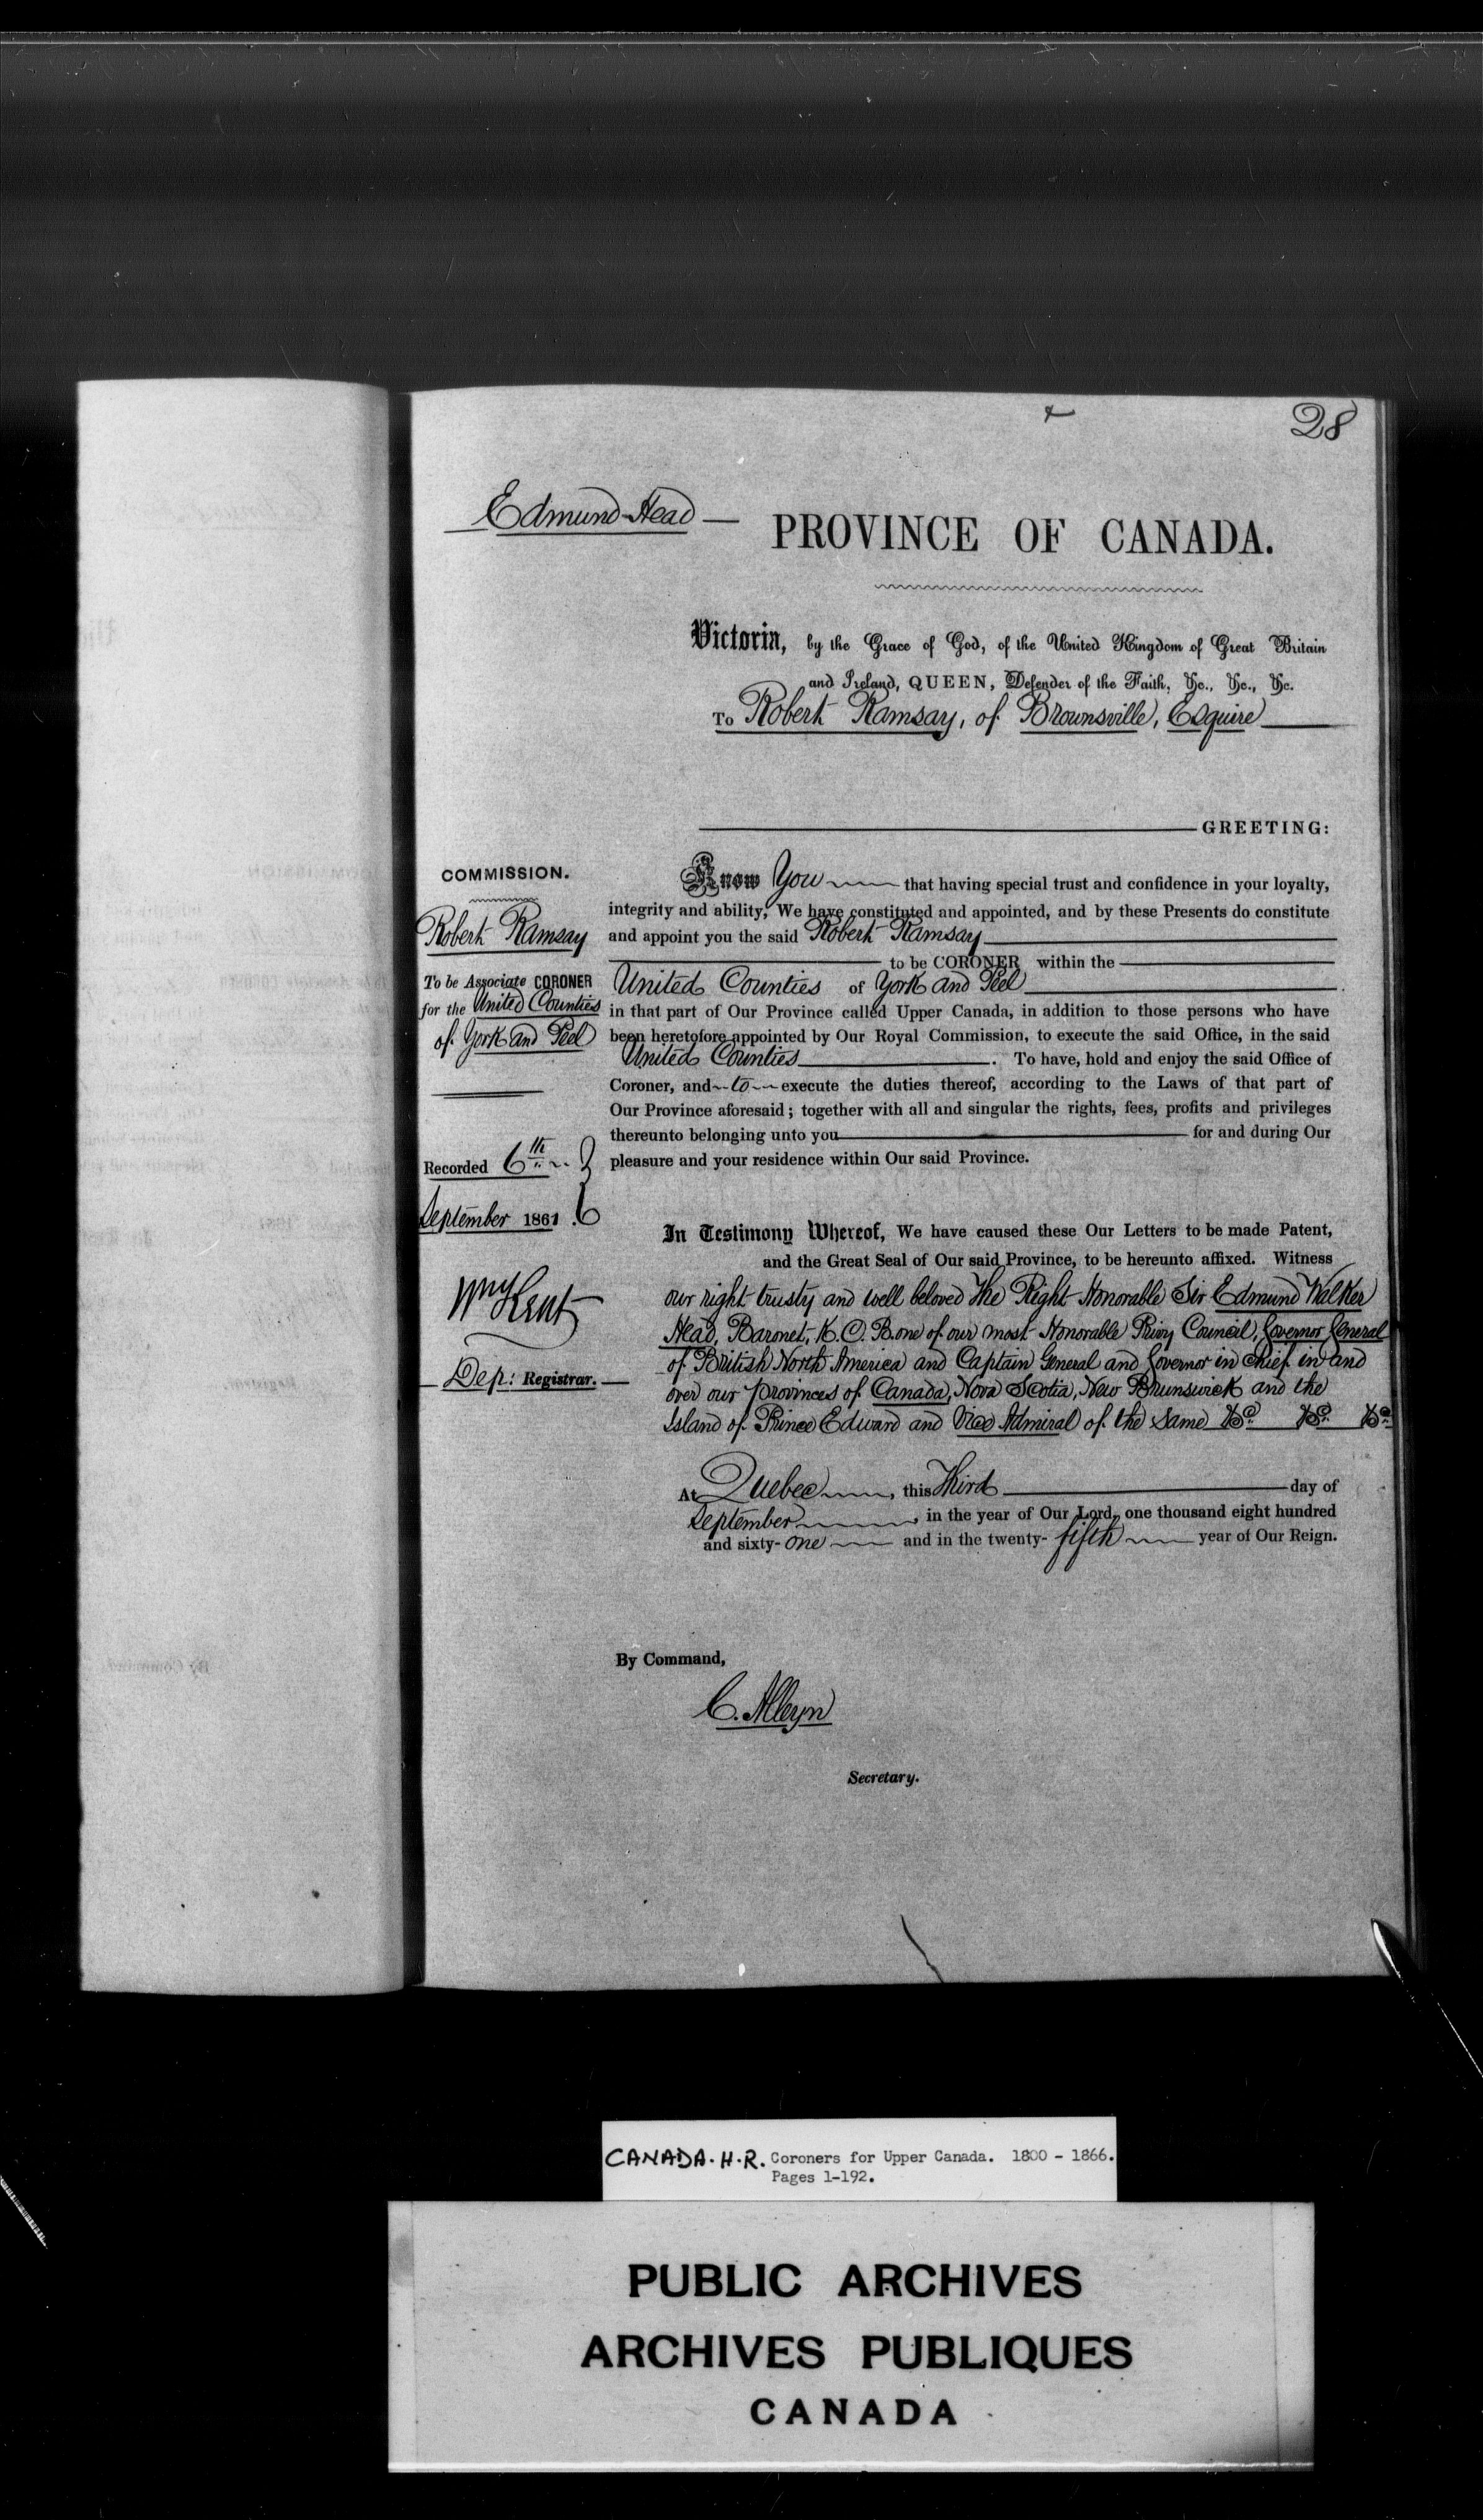 28
Edmund Head
PROVINCE OF CANADA.
Victoria, by the Grace of God, of the United Kingdom of Great Britain
and Ireland, QUEEN, Defender of the Faith, &c., &c., &c.
To Robert Ramsay, of Brownsville, Esquire
GREETING:
COMMISSION.
Robert Ramsay
To be Associate CORONER
for the United Counties
of York and Peel
Recorded 6th
September 1861.
Wm Kent
Dep: Registrar.
Know You that having special trust and confidence in your loyalty,
integrity and ability, We have constituted and appointed, and by these Presents do constitute
and appoint you the said Robert Ramsay
to be CORONER within the
United Counties of York and Peel
in that part of Our Province called Upper Canada, in addition to those persons who have
been heretofore appointed by Our Royal Commission, to execute the said Office, in the said
United Counties. To have, hold and enjoy the said Office of
Coroner, and to execute the duties thereof, according to the Laws of that part of
Our Province aforesaid; together with all and singular the rights, fees, profits and privileges
thereunto belonging unto you for and during Our
pleasure and your residence within Our said Province.
In Testimony Whereof, We have caused these Our Letters to be made Patent,
and the Great Seal of Our said Province, to be hereunto affixed. Witness
our right trusty and well beloved The Right Honorable Sir Edmund Walker
Head, Baronet, K.C.B. one of our most Honorable Privy Council, Governor General
of British North America and Captain General and Governor in Chief in and
over our provinces of Canada, Nova Scotia, New Brunswick and the
Island of Prince Edward and Vice Admiral of the same &c. &c. &c.
At Quebec, this Third day of
September, in the year of Our Lord, one thousand eight hundred
and sixty-one and in the twenty-fifth year of Our Reign.
By Command,
C. Alleyn
Secretary.
CANADA. H.R. Coroners for Upper Canada. 1800 - 1866.
Pages 1-192.
PUBLIC ARCHIVES
ARCHIVES PUBLIQUES
CANADA